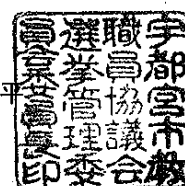 宇都宮市教
職員協議会
選挙管理委
員会委員長印
平